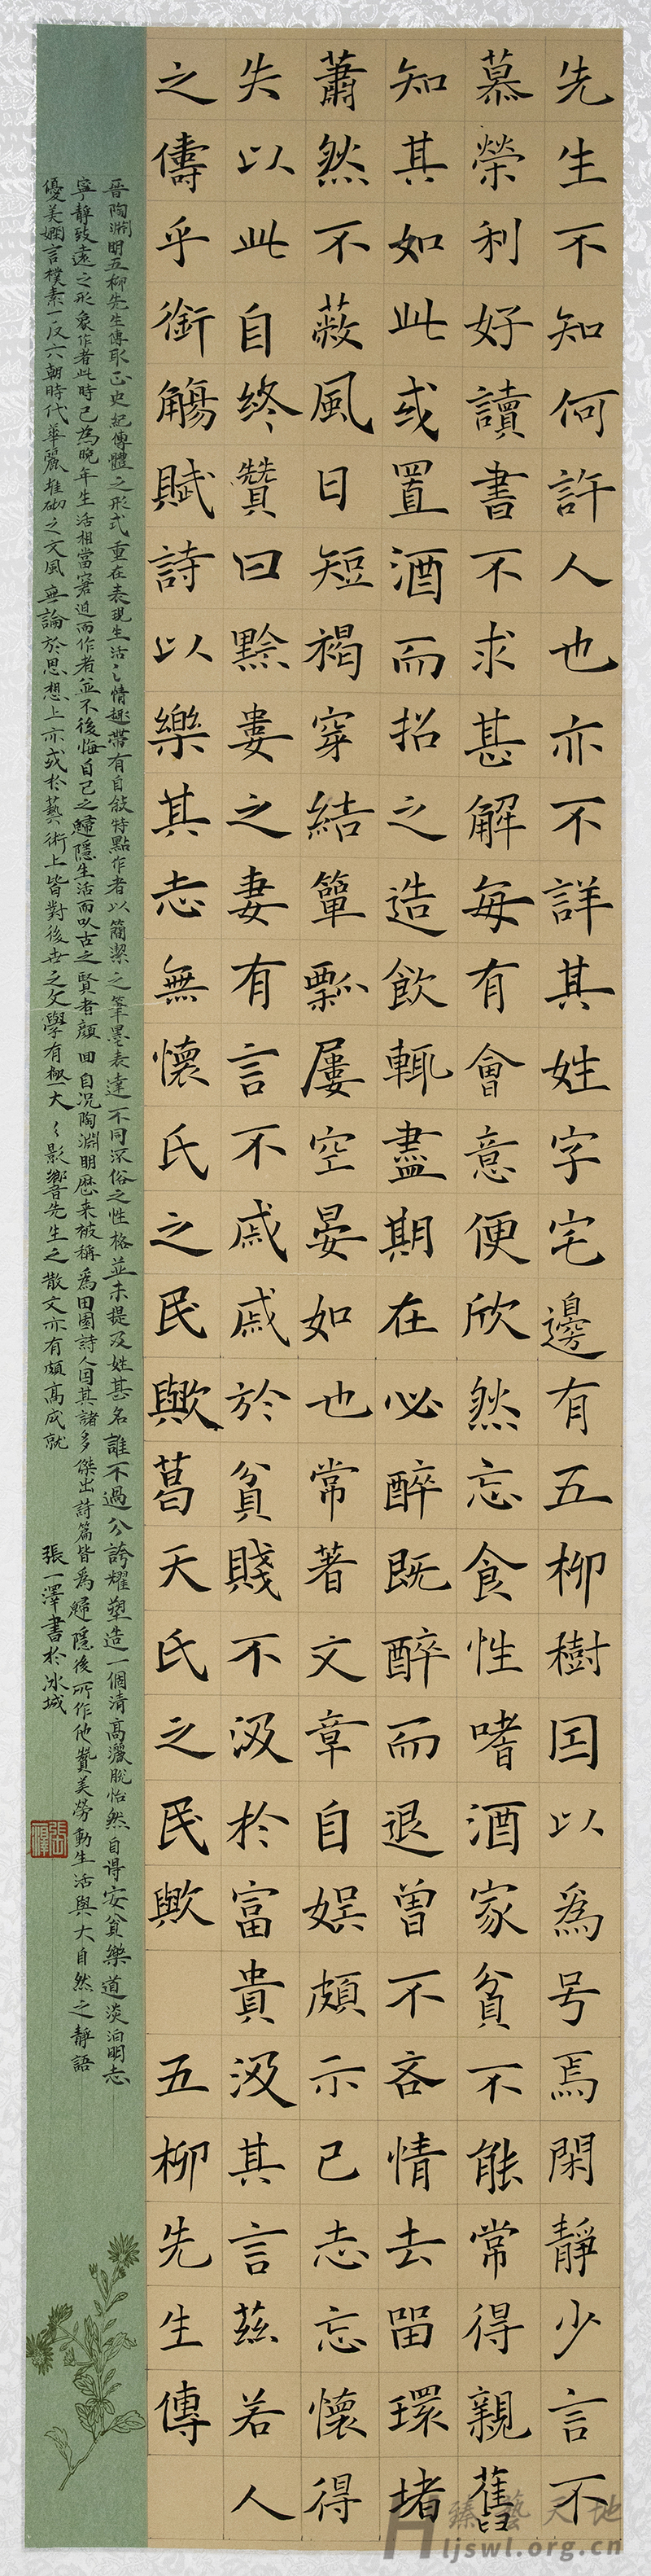 先生不知何許人也亦不詳其姓字宅邊有五柳樹因以為号焉閑靜少言不
慕榮利好讀書不求甚解每有會意便欣然忘食性嗜酒家貧不能常得親舊
知其如此或置酒而招之造飲輒盡期在必醉既醉而退曾不吝情去留環堵
蕭然不蔽風日短褐穿結簞瓢屢空晏如也常著文章自娛頗示己志忘懷得
失以此自終贊曰黔婁之妻有言不戚戚於貧賤不汲於富貴汲其言茲若人
之儔乎銜觴賦詩以樂其志無懷氏之民歟葛天氏之民歟 五柳先生傳
晉陶淵明五柳先生傳取正史紀傳體之形式重在表現生活之情趣帶有自敘特點作者以簡潔之筆墨表達不同流俗之性格並未提及姓甚名誰不過分誇耀塑造一個清高灑脫怡然自得安貧樂道淡泊明志
寧靜致遠之形象作者此時已為晚年生活相當窘迫而作者並不後悔自己之歸隱生活而以古之賢者顏回自况陶淵明歷来被稱為田園詩人因其諸多傑出詩篇皆為歸隱後所作他贊美勞動生活與大自然之靜語
優美嫻言樸素一反六朝時代華麗堆砌之文風無論於思想上亦或於藝術上皆對後世之文學有極大之影響先生之散文亦有頗高成就
張一澤書於冰城
張一澤
臻藝天地
Hljswl.org.cn